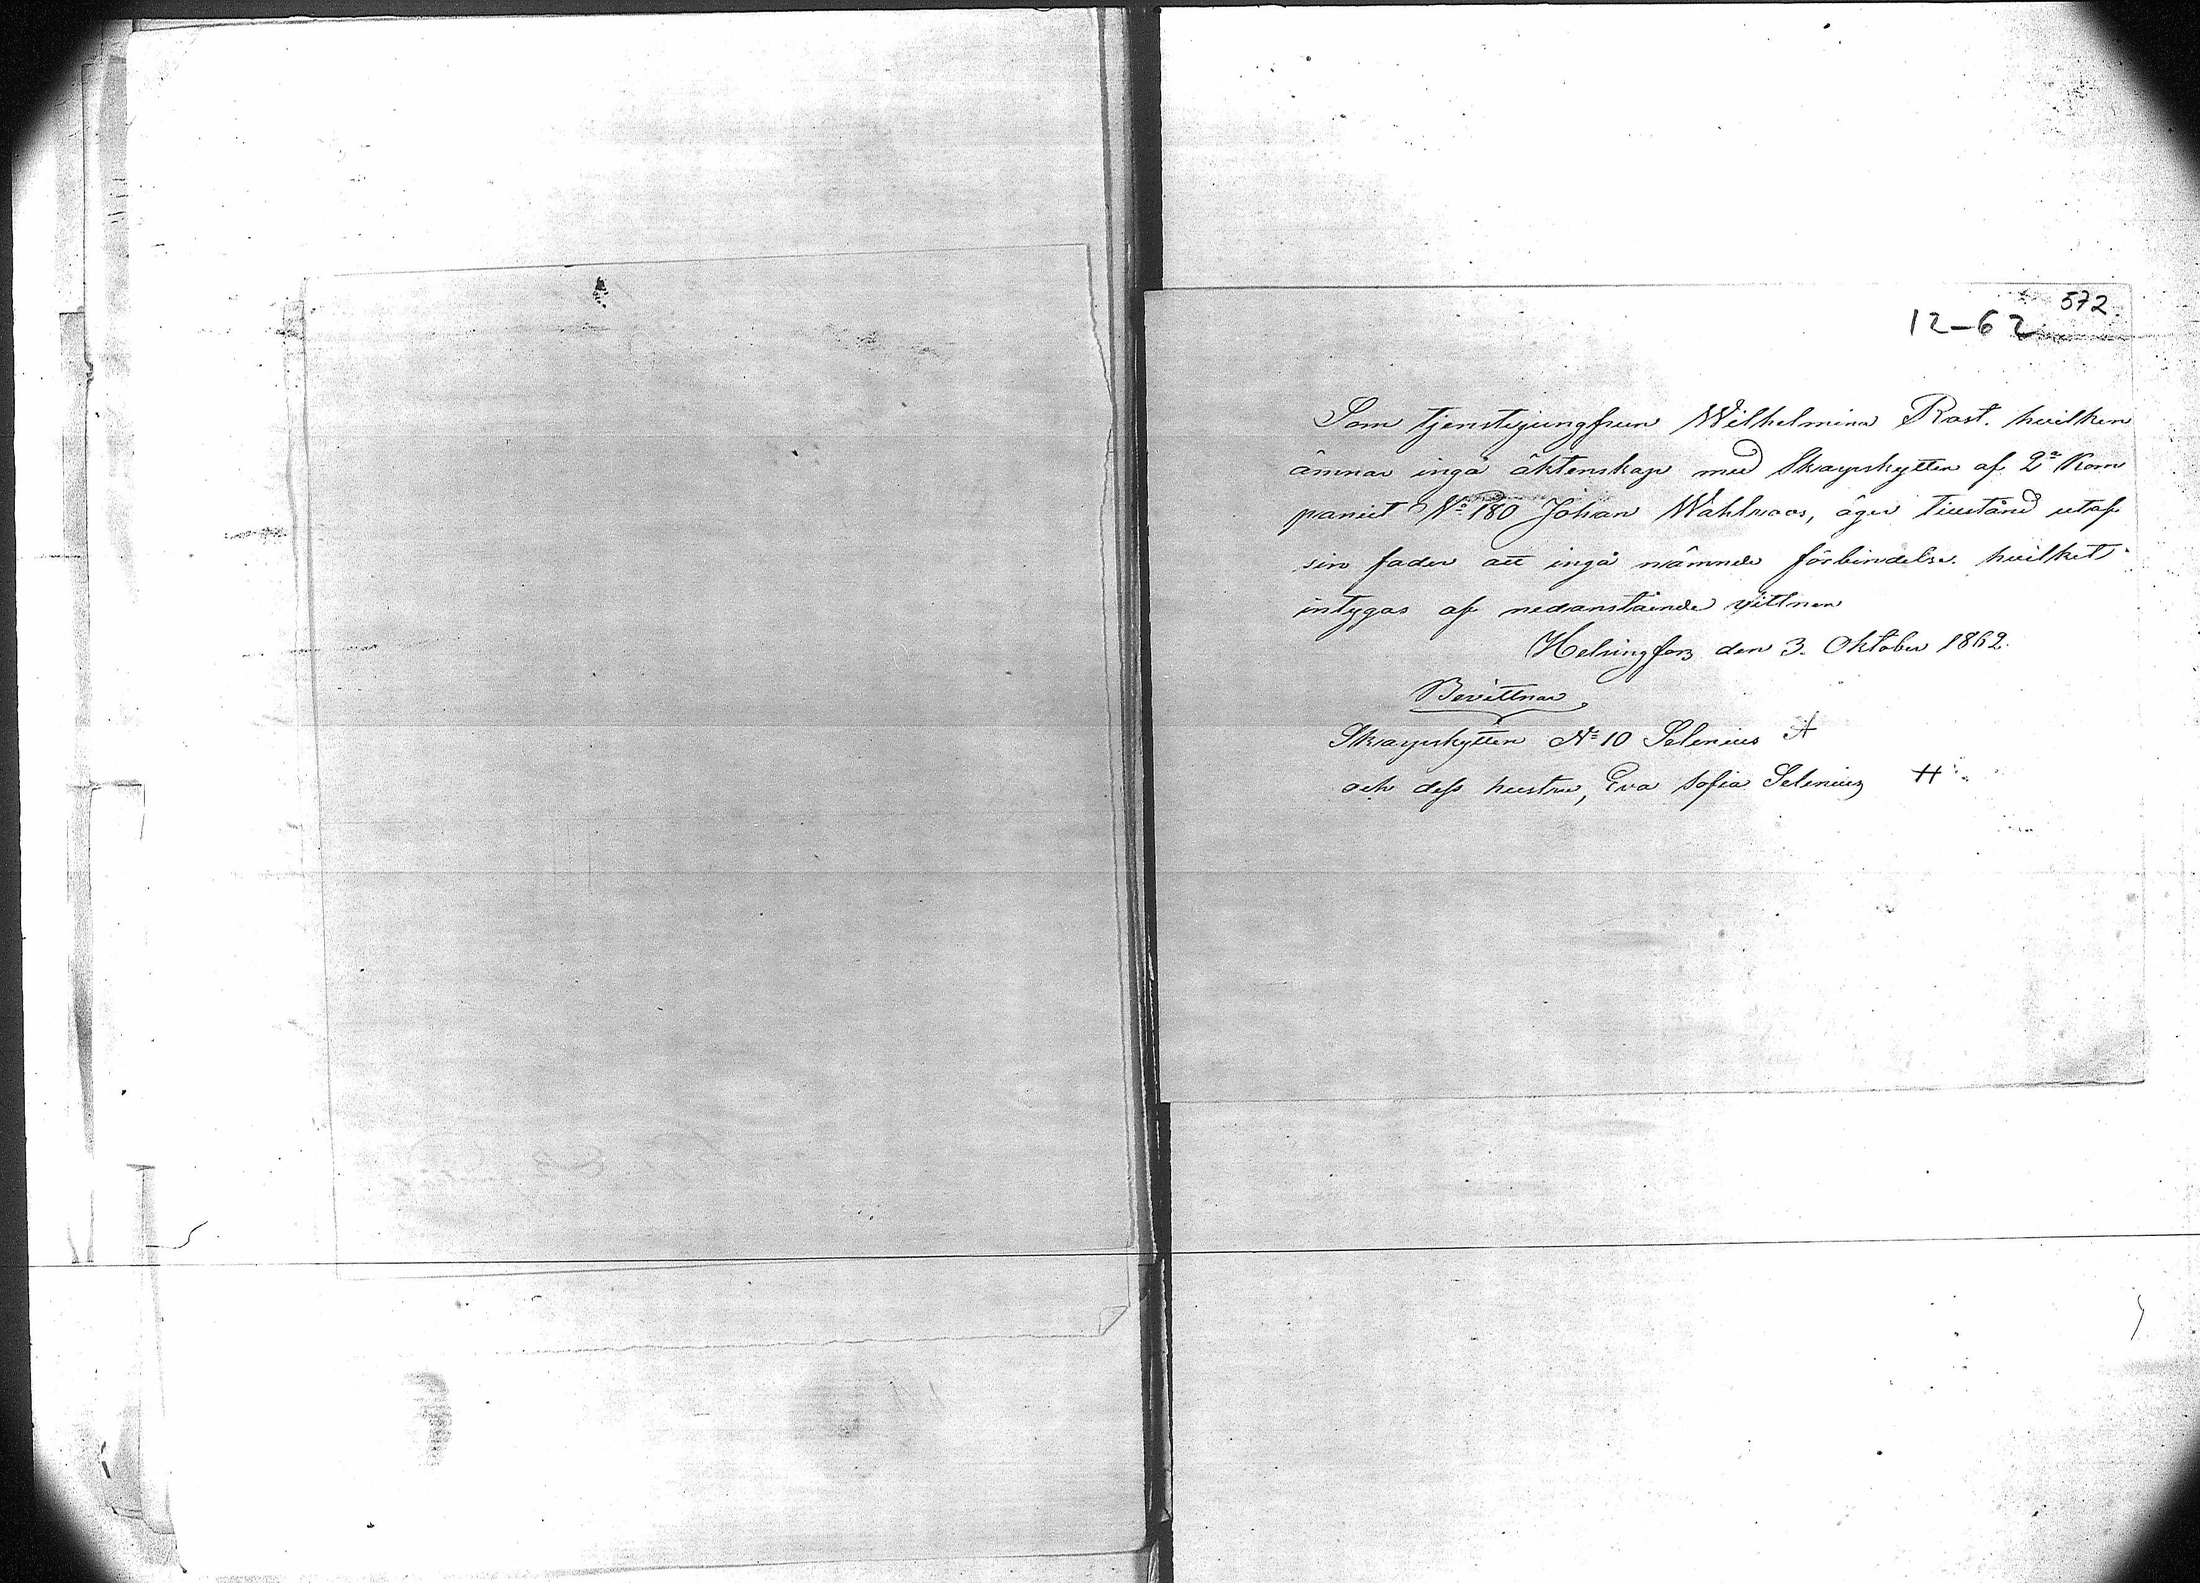 572.
12-62
Som tjenstejungfrun Wilhelmina Rast. hvilken
ämnar ingå äktenskap med Skarpskytten af 2a Kom
paniet No 180 Johan Wahlroos, äger tillstånd utaf
sin fader att ingå nämnde förbindelse. hvilket
intygas af nedanstående vittnen
Helsingfors den 3. Oktober 1862.
Bevittnar
Skarpskytten No 10 Selenius
och dess hustru, Eva Sofia Selenius